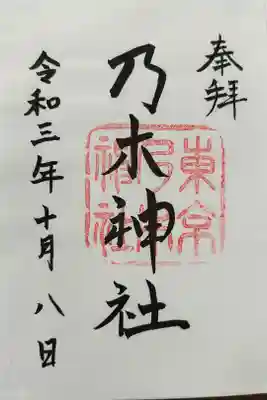 奉拝
乃木神社
東京
乃木
神社
令和三年十月八日